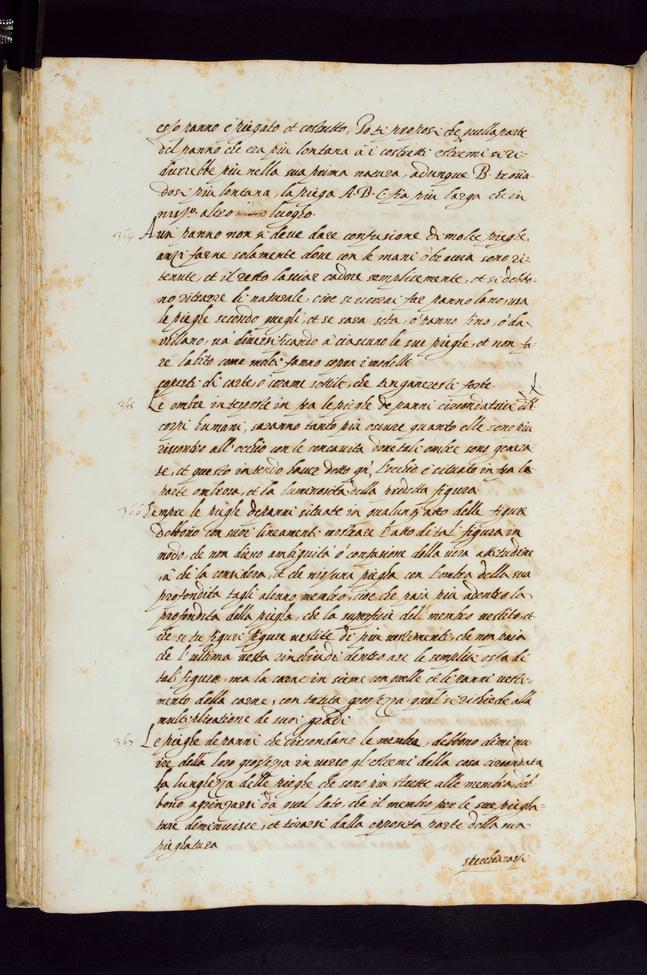 esso panno è piegato et costretto, Io ti proposi che quella parte
del panno che era più lontana à i costretti estremi si ri
durrebbe più nella sua prima natura, adunque B trova
dosi più lontana, la piega A·B·C· fia più larga che in
niss.º altro luogo·
364 A un panno non si deve dare confusione di molte pieghe,
anzi farne solamente dove con le mani ò braccia sono ri-
tenute, et il resto lasciar cadere semplicemente, et si debbo-
no ritrarre di naturale, cioè se vorrai far panno lano, usa
le pieghe secondo quegli, et se sara seta, ò panno fino, ò da
villano, và diversificando à ciascuno le sue pieghe, et non fa-
re l'abito come molti fanno sopra i modelli
coperti di carte, ò corame sottile, che t'inganeresti forte
365 Le ombre interposte in fra le pieghe de panni circondatrici dell
corpi humani, saranno tanto più oscure quanto elle sono più
riscontro all'occhio con le concavità dove tali ombre sono genera-
te, et questo intendo haver detto qñ l'occhio è situato in fra la
parte ombrosa, et la luminosa della predetta figura·
366 Sempre le pieghe de panni situate in qualunq; atto delle figure
debbono con suoi lineamenti mostrare l'atto di tal figura in
modo, che non dieno ambiguità ò confusione della vera attitudine
à chi la considera, et che nissuna piegha con l'ombra della sua
profondità tagli alcuno membro, cioè che paia più adentro la
profondità della piegha, che la superfitie del membro vestito, et
che se tu figuri figure vestite di più vestimenti, che non paia
che l'ultima vesta rinchiuda dentro a se le semplici ossa di
tali figure, ma la carne insieme con quelle et li panni vesti-
mento della carne, con tanta grossezza qual si richiede alla
multiplicatione de suoi gradi·
367 Le pieghe de panni che circondano le membra, debbono diminu
ire della loro grossezza in verso gl'estremi della cosa circondata
La lunghezza delle pieghe che sono più strette alle membra deb
bono agrinzarsi da quel lato, che il membro per le sue piegha-
ture diminuisce, et tirarsi dalla opposita parte della sua
pieghatura